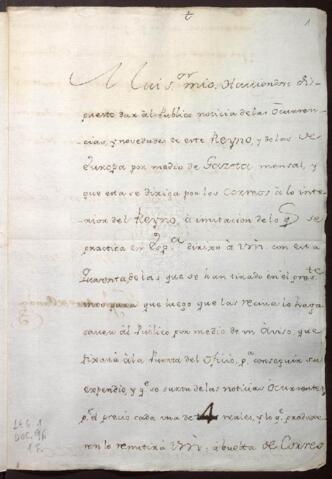 1
Mui s.or mio. Haviendose dis
puesto dar al Publico noticia de las Ocurren
cias, y novedades de este Reyno, y de las de
Europa por medio de Gazeta mensal, y
que esta se dirija por los Correos à lo inte
rior del Reyno, a imitacion de lo q.e se
practica en Esp.a dirixo à Vm. con esta
de las que se han tirado en el pres.te
mes para que luego que las reciva lo haga
saver al Publico por medio de un Aviso, que
fixará à la Puerta del Oficio, p.a conseguir su
expendio, y q.e se surta de las noticias Ocurrentes
p.r el precio cada una de 4 reales, y lo q.e produxe
ren lo remitirá Vm. à buelta de Correo
LEG. 1
DOC. 96
1 F.